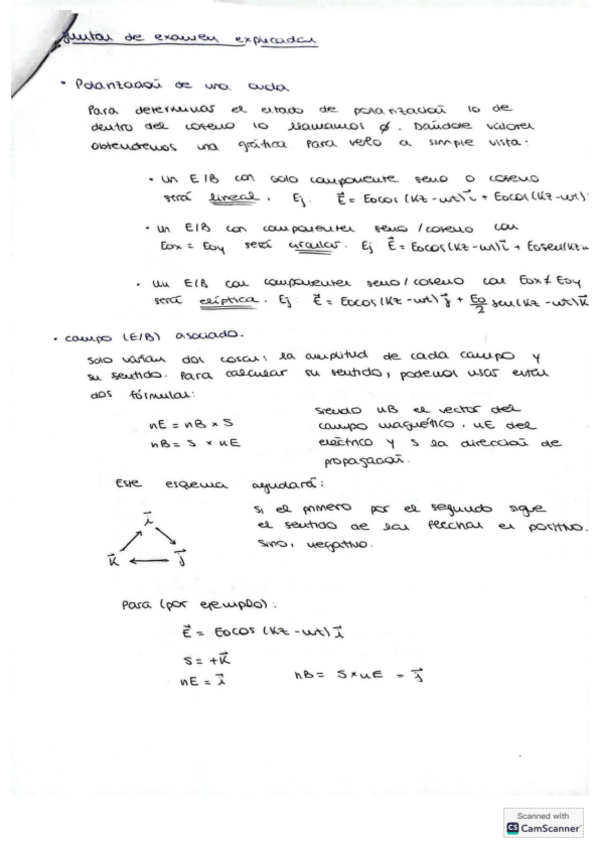 de examen explicadas
• Polarización de una onda
Para determinar el estado de polarización lo de
dentro del coseno lo llamamos ø. Dándole valores
obtendremos una gráfica para verlo a simple vista:
• Un E/B con solo componente seno o coseno
será lineal. Ej: E⃗ = Eocos(Kz-wt)i⃗ + Eocos(Kz-wt)
• Un E/B con componentes seno/coseno con
Eox = Eoy será circular. Ej E⃗ = Eocos(Kz-wt)i⃗ + Eosen(Kz-w
• Un E/B con componentes seno/coseno con Eox ≠ Eoy
será elíptica. Ej: E⃗ = Eocos(Kz-wt)j⃗ + Eo/2 sen(Kz-wt)K⃗
• Campo (E/B) asociado.
Solo varían dos cosas: la amplitud de cada campo y
su sentido. Para calcular su sentido, podemos usar estas
dos fórmulas:
nE = nB x S
nB = S x nE
siendo nB el vector del
campo magnético, nE del
eléctrico y S la dirección de
propagación.
Este esquema ayudará:
i⃗
K⃗ j⃗
Si el primero por el segundo sigue
el sentido de las flechas es positivo.
Sino, negativo.
Para (por ejemplo):
E⃗ = Eocos (Kz-wt) i⃗
S = +K⃗
nE = i⃗
nB = S x nE = j⃗
Scanned with
CS CamScanner